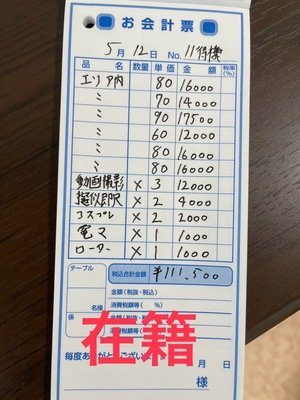 お会計票
5月 12日 No. 11待機
品 名 数量 単価 金 額 税率(%)
エリア内 80 16000
〃 70 14000
〃 90 17500
〃 60 12000
〃 80 16000
〃 80 16000
動画撮影 × 3 12000
× 2 4000
コスプレ × 2 2000
電マ × 1 1000
ローター × 1 1000
テーブル 税込合計金額 ¥111,500
金額(税抜・税込)
名様 消費税額等( %)
係 金額(税抜・税込)
消費税額等( %)
在籍
毎度ありがとうございます 月 日
様